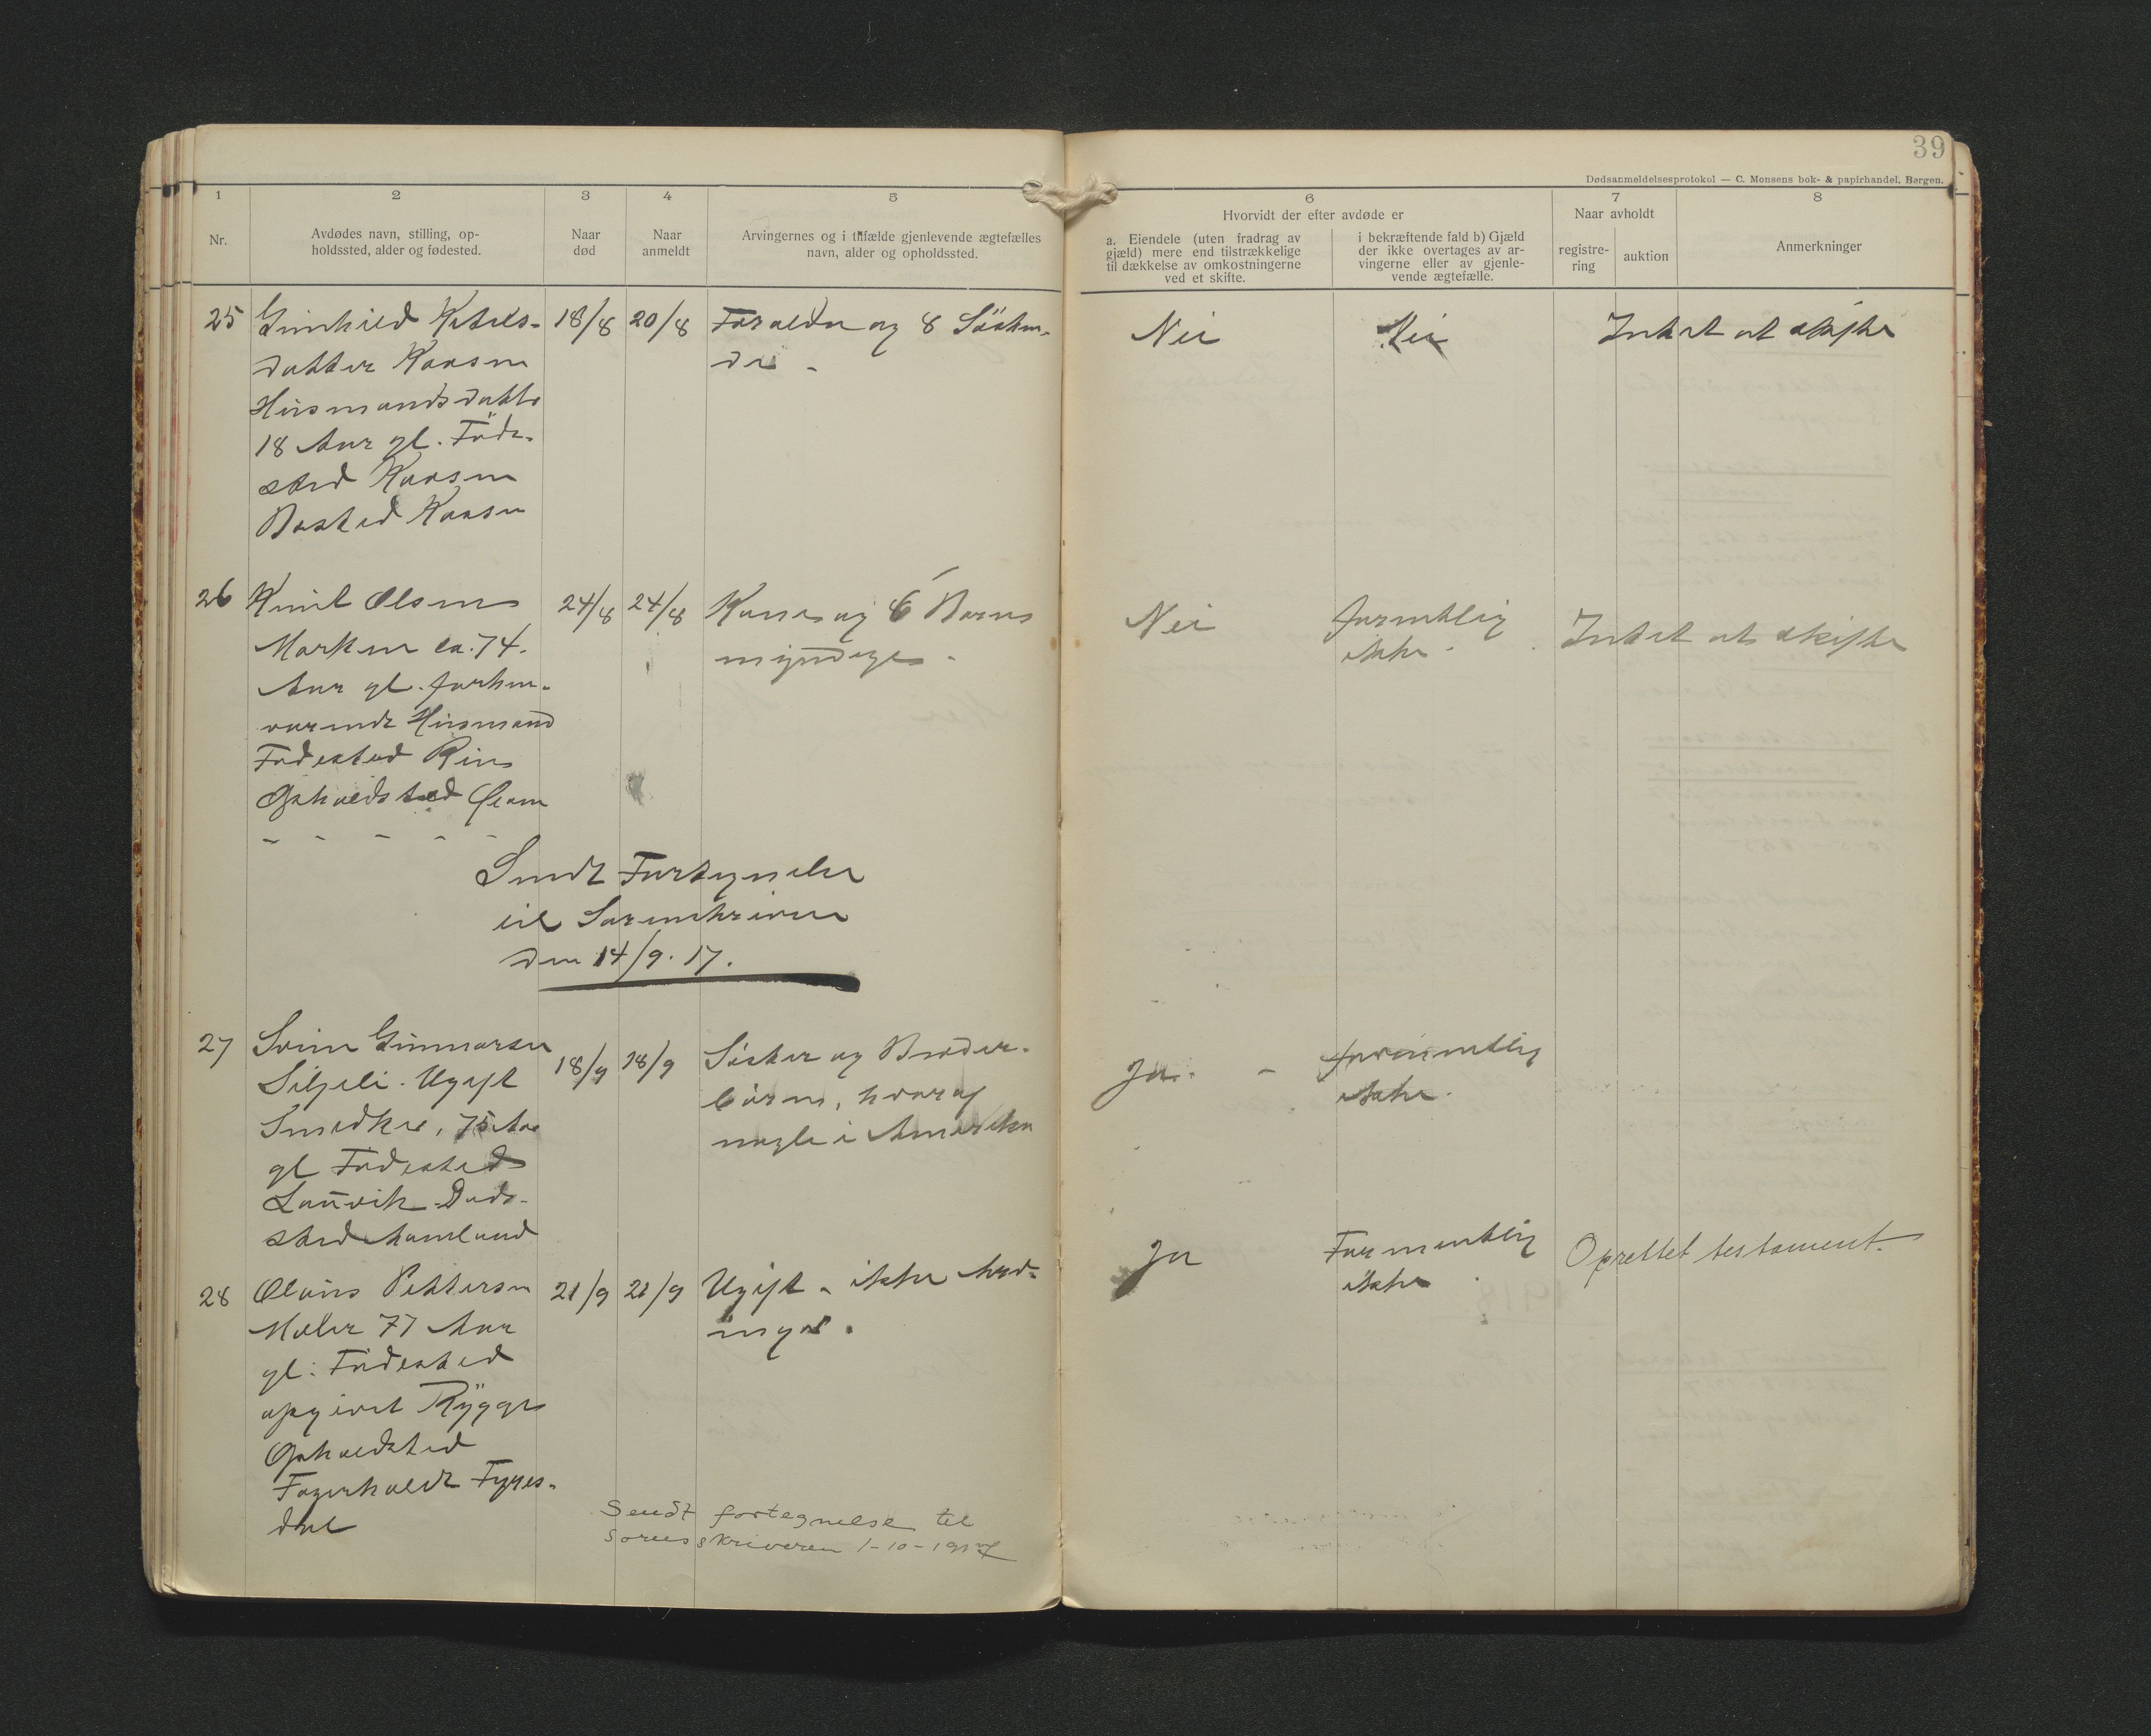 39
Dødsanmeldelsesprotokol — C. Monsens bok- & papirhandel, Bergen.
1 2 3 4 5 6 7 8
Nr.
Avdødes navn, stilling, op-
holdssted, alder og fødested.
Naar
død
Naar
anmeldt
Arvingernes og i tilfælde gjenlevende ægtefælles
navn, alder og opholdssted.
Hvorvidt der efter avdøde er
a. Eiendele (uten fradrag av
gjæld) mere end tilstrækkelige
til dækkelse av omkostningerne
ved et skifte.
i bekræftende fald b) Gjæld
der ikke overtages av ar-
vingerne eller av gjenle-
vende ægtefælle.
Naar avholdt
registre-
ring
auktion
Anmerkninger
25 Gunhild Ketels-
datter Kaasen
Husmandsdatter
18 Aar gl. Føde-
sted Kaasen
Bosted Kaasen
18/8 20/8
Forældre og 8 Søsken-
de
Nei
Nei
Intet at skifte
26 Knut Olsen
Marken ca. 74.
Aar gl. forhen-
værende Husmand
Fødested
Opholdsted
24/8 24/8
Kone og 6 Børn
myndige
Nei
formentlig
ikke
Intet at skifte
Sendt Fortegnelse
til Sorenskriveren
den 14/9. 17.
27 Svein Gunnarsen
Ugift
75 Aar
gl Fødested
Døds-
sted
18/9 18/9
Søster og Broder-
børn, hvoraf
nogle i Amerika
Ja
formentlig
ikke
28 Olaus Pettersen
Maler 77 Aar
gl. Fødested
opgivet Rygge
Opholdsted
Fyres-
dal
21/9 21/9
Ugift ikke
Ja
Formentlig
ikke
Oprettet testament.
Sendt fortegnelse til
sorenskriveren 1-10-1917